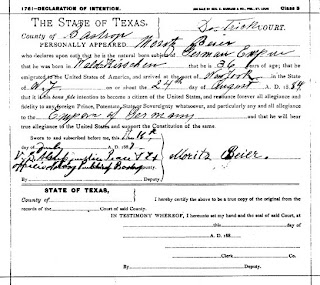 (76)—DECLARATION OF INTENTION. Class 5
THE STATE OF TEXAS, District COURT.
County of Bastrop
PERSONALLY APPEARED Moritz Beier
who declares upon oath that he is the natural born subject of German Empire
that he was born in 36 years of age; that he
emigrated to the United States of America, and arrived at the port of New York in the State
of N.Y. on or about the 24 day of August A. D. 18
that it is bona fide intention to become a citizen of the United States, and renounce forever all allegiance and
fidelity to any foreign Prince, Potentate, State or Sovereignty whatsoever, and particularly any and all allegiance to
the Emperor of Germany and that he will bear
true allegiance to the United States and support the Constitution of the same.
Sworn to and subscribed before me, this 16th
day of July A. D. 188
Moritz Beier.
By Deputy.
STATE OF TEXAS,
County of
I hereby certify the above to be a true copy of the original from the
records of the Court of said County.
IN TESTIMONY WHEREOF, I hereunto set my hand and the seal of said Court, at
this day of
A. D. 188
Clerk Co.
By Deputy.